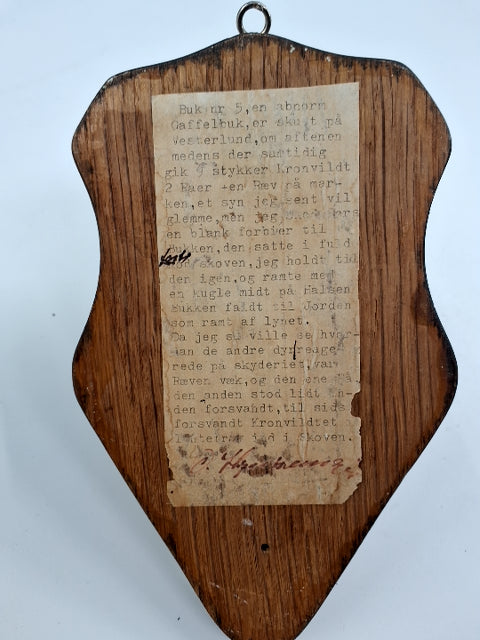 Buk nr 5,en abnorm
Gaffelbuk,er skudt på
Vesterlund,om aftenen
medens der samtidig
gik 9 stykker Kronvildt
2 Raer en Ræv på mar-
ken,et syn jeg sent vil
glemme,men jeg
en blank forbier til
Bukken,den satte i fuld
skoven,jeg holdt til
den igen,og ramte med
en kugle midt på Halsen
Bukken faldt til Jorden
som ramt af lynet.
Da jeg så ville se hvor-
dan de andre dyr reage-
rede på skyderiet,var
Ræven væk,og den ene Rå
den anden stod lidt in-
den forsvandt,til sidst
forsvandt Kronvildtet
ind i Skoven.